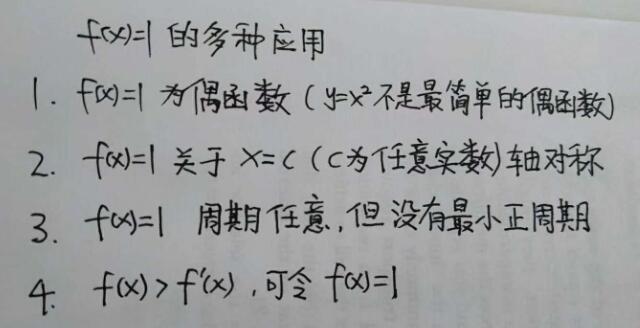 f(x)=1 的多种应用
1. f(x)=1 为偶函数 (y=x²不是最简单的偶函数)
2. f(x)=1 关于 x=c (c为任意实数)轴对称
3. f(x)=1 周期任意,但没有最小正周期
4. f(x)>f'(x),可令 f(x)=1